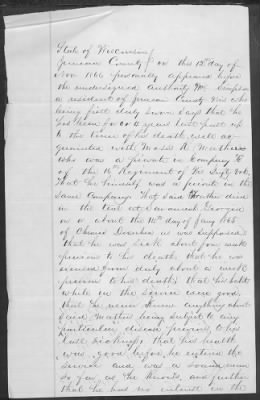 State of Wisconsin
Juneau County } on this 12th day of
Nov 1866 personally appeared before
the undersigned authority Wm Simpson
a resident of Juneau County Wis who
being first duly sworn says that he
has been for 6 years next past up
to the time of his death well ac-
quainted with Moses
who was a private in Company
of the 16th Regiment of Vols
That he himself was a private in the
same Company That said died
in the at Savannah Georgia
on or about the 14th day of Jany 1865
of Chronic Diarrhea as was supposed
that he was sick about four weeks
previous to his death, that he was
excused from duty about a week
previous to his death, that his habits
while in the service were good
that he never knew anything about
said being subject to any
particular disease previous to his
last sickness, that his health
was good before he entered the
service and was a sound man
so far as he knows, and further
that he has no interest in the